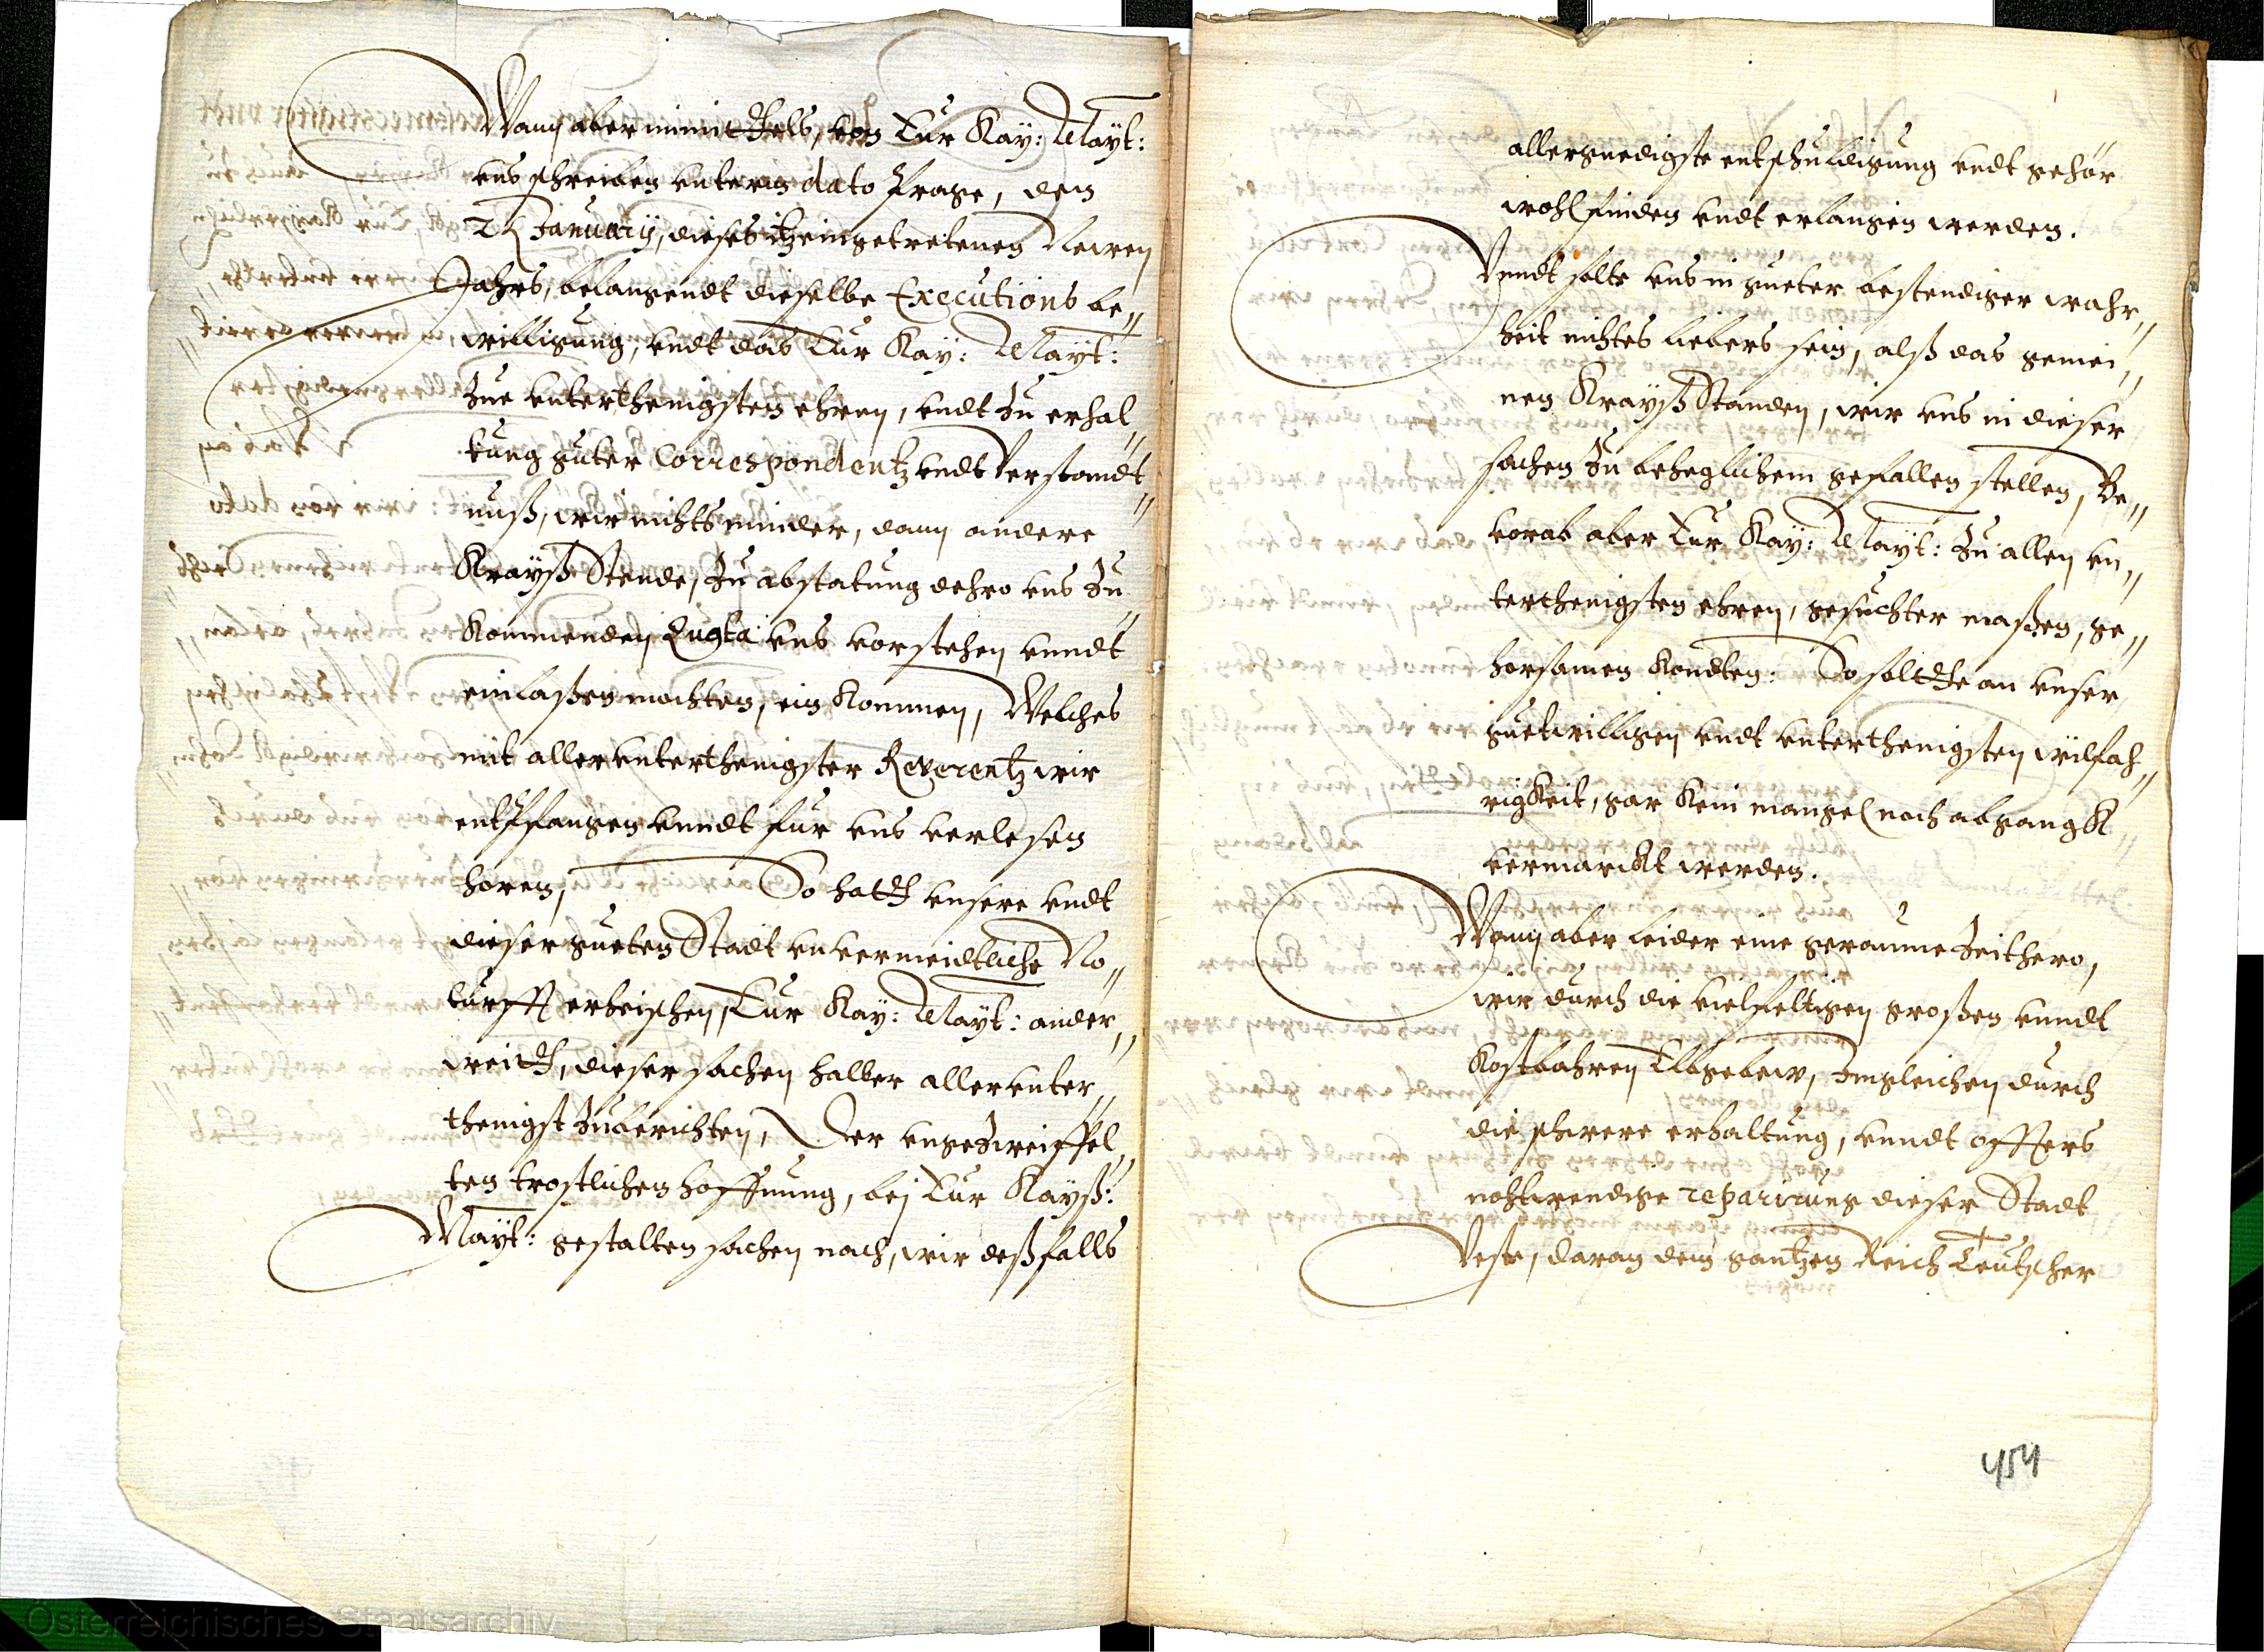 Wann aber inmittels, von Eur Kay: Mayt:
uns schreiben unterm dato Prage, den
Januarij, dieses itz eingetretenen Newen
Jahrs, belangendt dieselbe Executions be„
willigung, undt das Eur Kay: Mayt:
Zue unterthenigsten ehren, undt Zu erhal„
tung guter Correspondentz undt Verstandt„
nuß, wir nichts minder, dann andere
Krayß Stende, Zu abstatung dehro uns Zu„
kommenden Quota uns vorstehen unndt
einlaßen mochten, ein kommen, Welches
mit aller unterthenigster Reverentz wir
entpfangen unndt fur uns verlesen
horen, So hatt unsere undt
dieser gueten Stadt unvermeidtliche No„
turfft erheischen, Eur Kay: Mayt: ander„
weitt, dieser sachen halber allerunter„
thenigst Zuberichten, Der ungezweiffel„
ten trostlichen hoffnung, bej Eur Kayß:
Mayt: gestalten sachen nach, wir deßfalls
allergnedigste entschuldigung undt gehör
wohl finden undt erlangen werden.
Unndt solte uns in gueter bestendiger wahr„
heit nichtes liebers sein, alß das gemei„
nen Krayß Standen, wir uns in dieser
sachen Zu beheglichem gefallen stellen, Be„
vorab aber Eur Kay: Mayt: Zu allen un„
terthenigsten ehren, gesuchter maßen, ge„
horsamen kondten: So soltte an unser
guetwilligen undt unterthenigsten wilfah„
rigkeit, gar kein mangel noch abgangk
vermarckt werden.
Wann aber leider eine geraume Zeithero,
wir durch die vielfeltigen großen unndt
kostbahren Elbgebew, Imgleichen durch
die schwere erhaltung, unndt offters
nohtwendige reparirung dieser Stadt
Veste, daran dem gantzen Reich Teutscher
454
Österreichisches Staatsarchiv